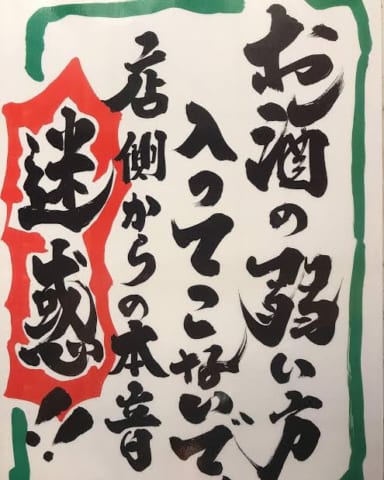 お酒の弱い方
入ってこないで、
店側からの本音
迷惑!!